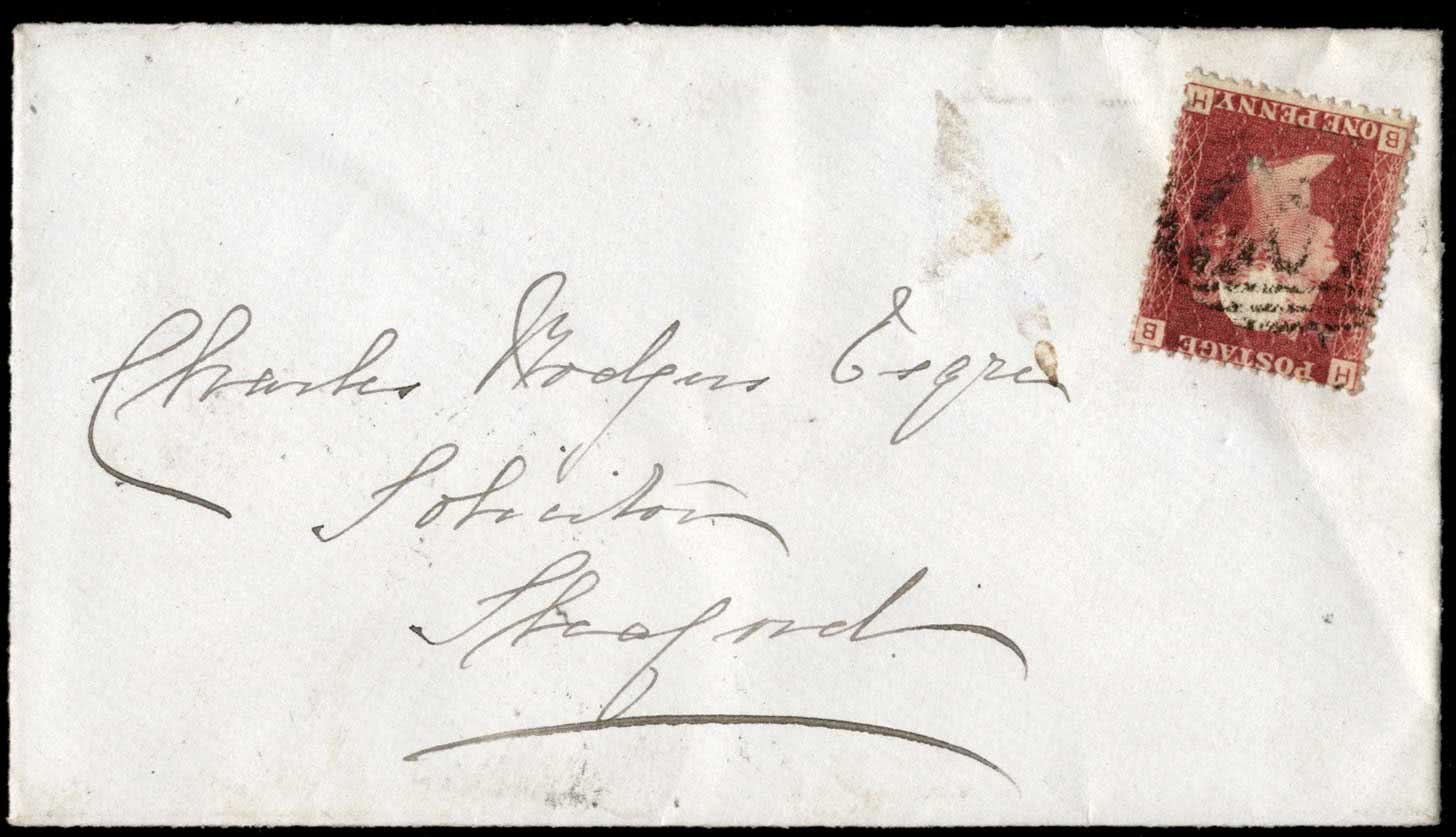 H POSTAGE B
B ONE PENNY H
Charles Rodgers Esqre
Solicitor
Sleaford